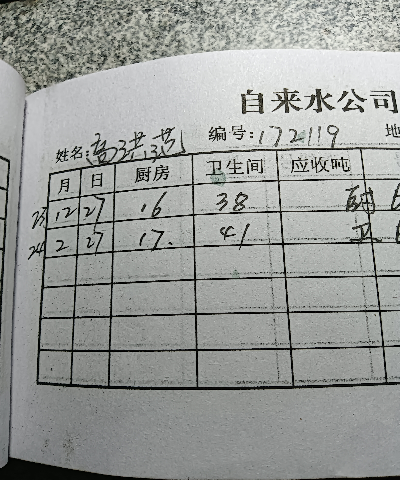 自来水公司
姓名:高洪燕 编号:172119 地
月 日 厨房 卫生间 应收吨
23 12 27 16 38
24 2 27 17. 41 卫